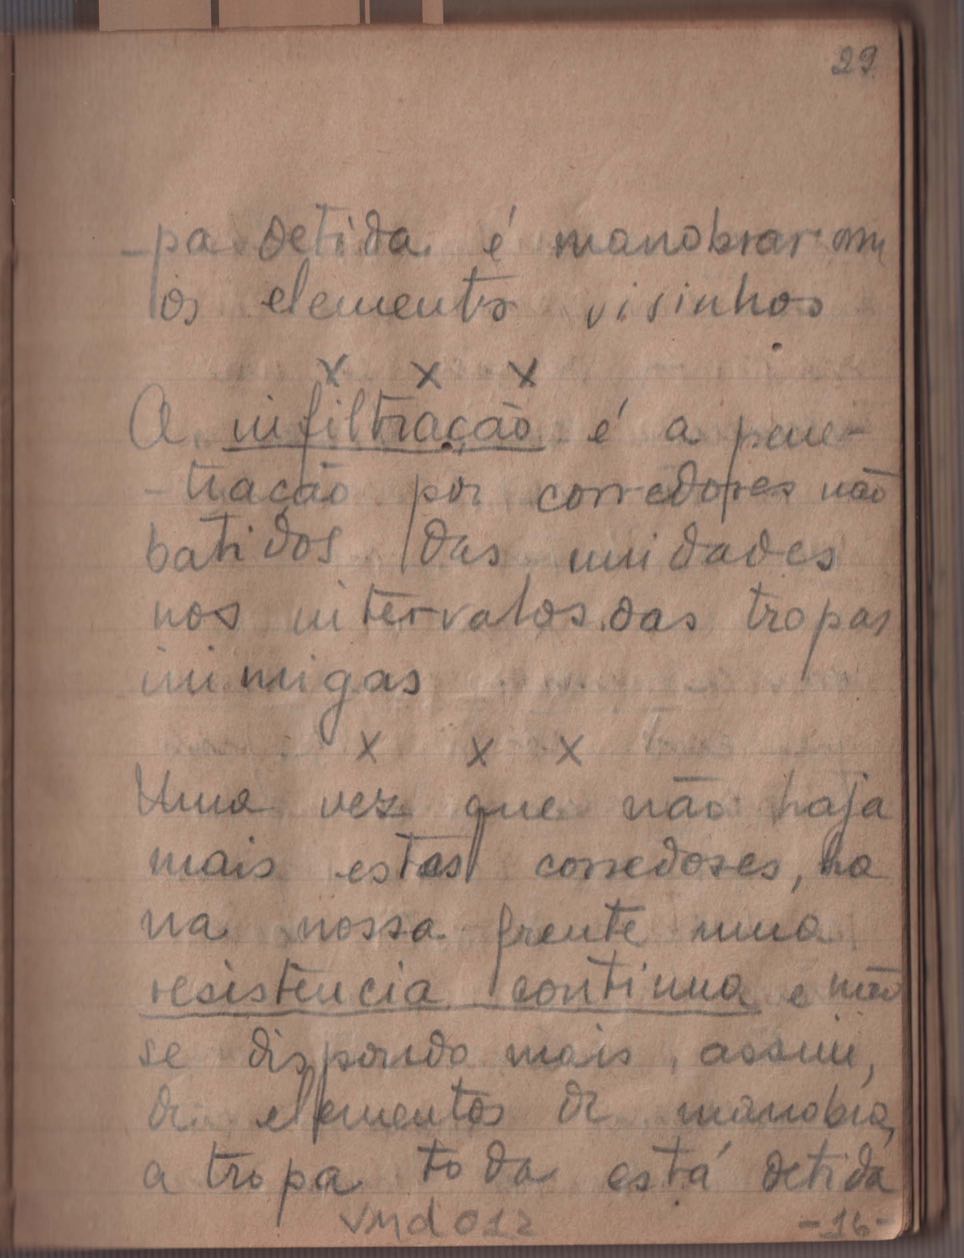 29
-pa detida é manobrar com
os elementos visinhos
x x x
A infiltração é a pene-
-tração por corredores não
batidos das unidades
nos intervalos das tropas
inimigas
x x x
Uma vez que não haja
mais estes corredores, ha
na nossa frente uma
resistência continua e não
se dispondo mais, assim,
de elementos de manobra,
a tropa toda está detida
VMd012
-16-